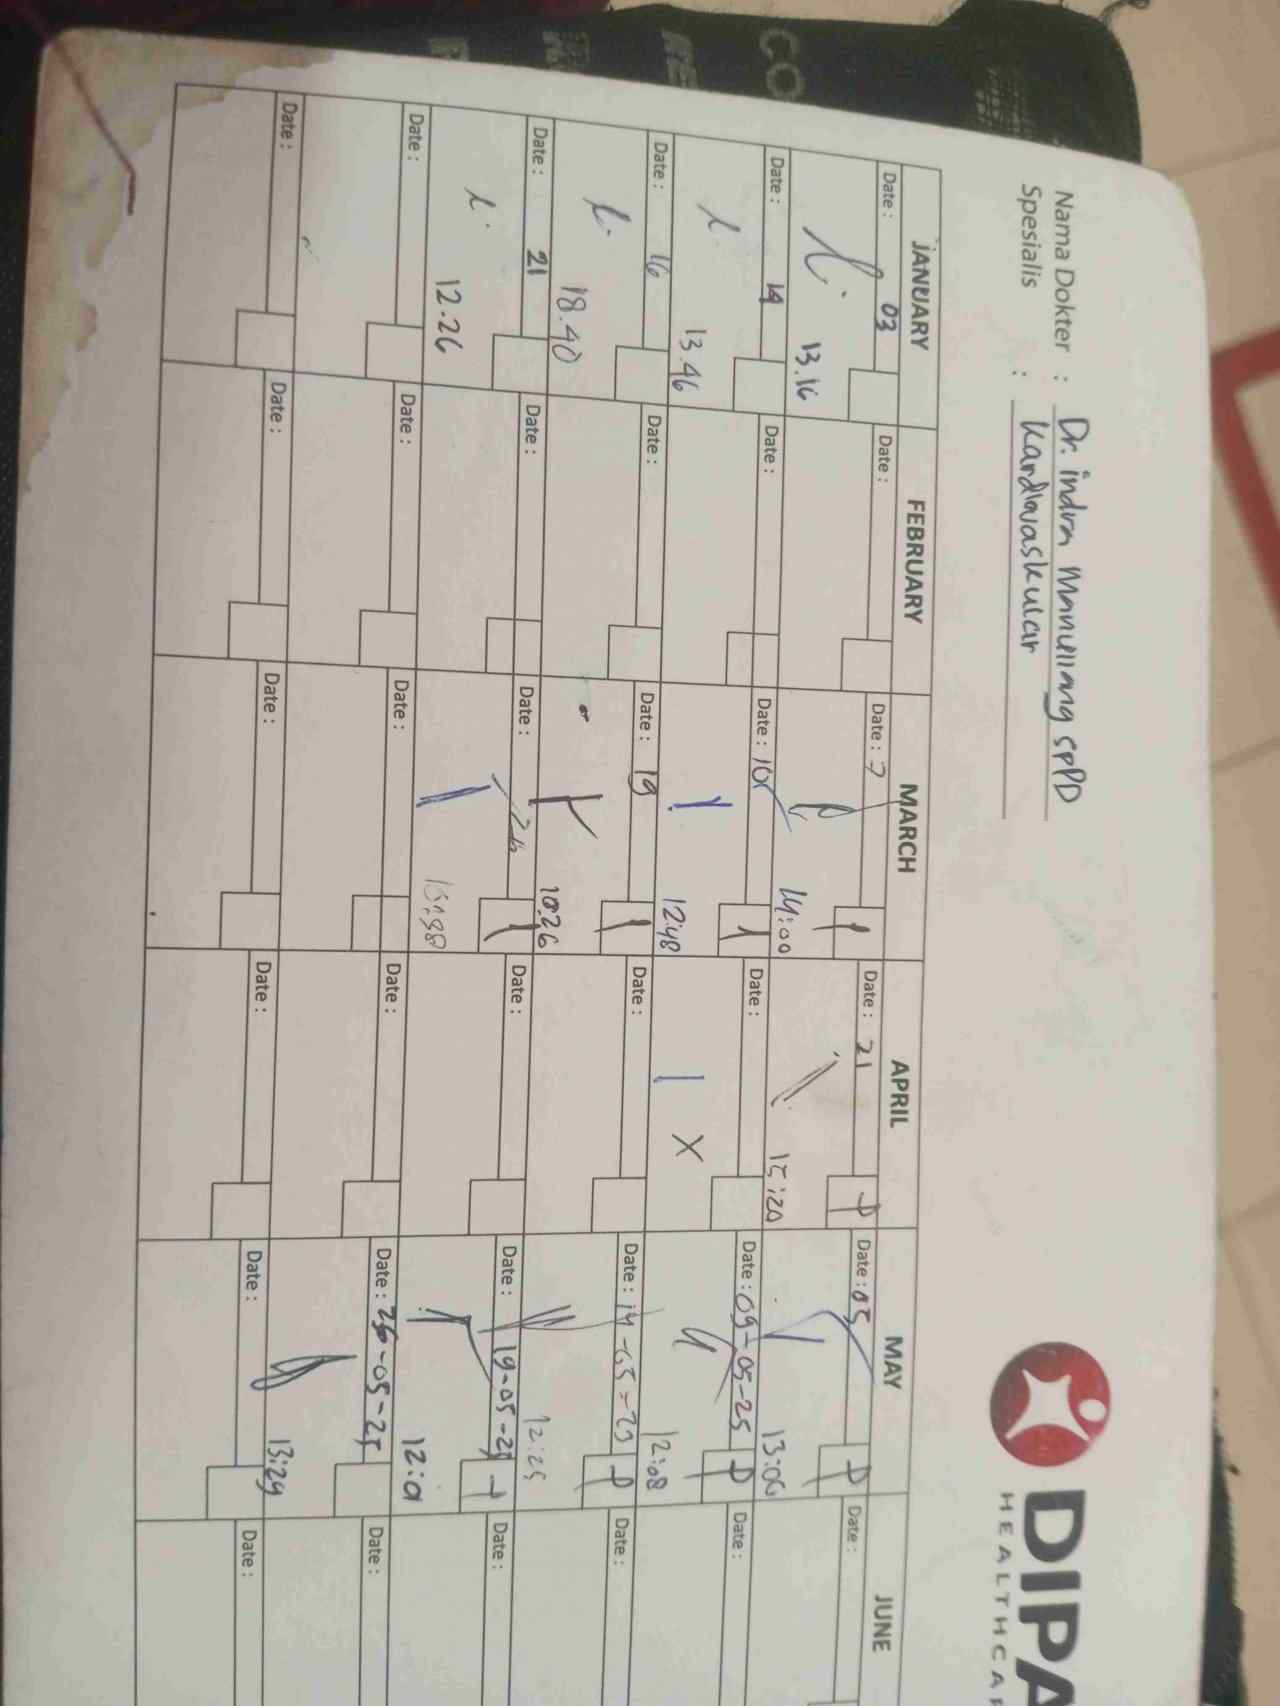 DIPA
HEALTHCAR
Nama Dokter : Dr. Indra Manullang SpPD
Spesialis : Kardiovaskular
JANUARY FEBRUARY MARCH APRIL MAY JUNE
Date : 03 Date : Date : 7 Date : 21 Date : 05 Date :
13.16 14:00 15:20 13:00
Date : 14 Date : Date : 10 Date : Date : 09-05-25 Date :
13.46 12:48 X 12:08
Date : 16 Date : Date : 19 Date : Date : 14-05-25 Date :
18.40 10:26 12:25
Date : 21 Date : Date : 26 Date : Date : 19-05-25 Date :
12.26 12:01
Date : Date : Date : Date : Date : 26-05-25 Date :
13:29
Date : Date : Date : Date : Date : Date :